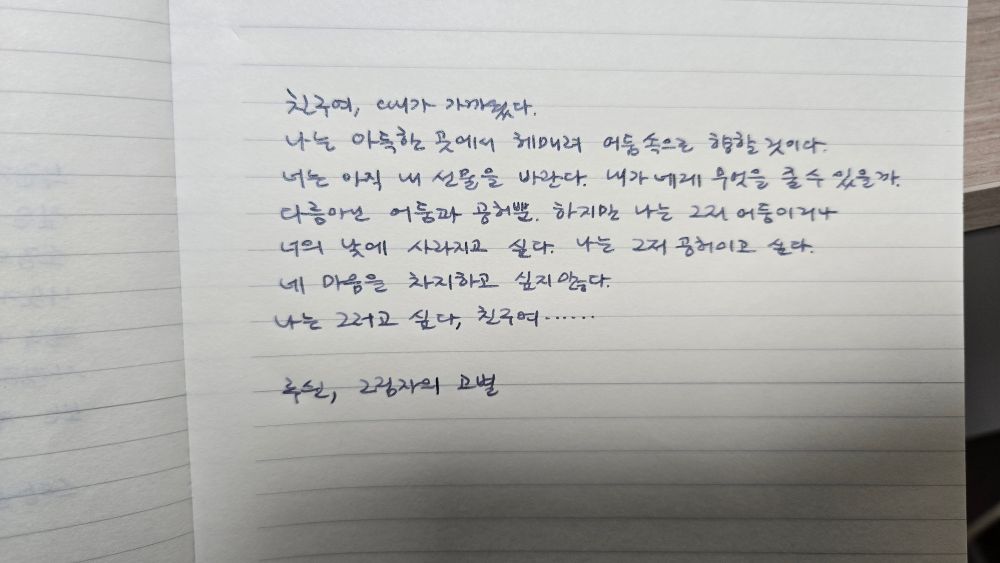 친구여, 때가 가까웠다.
나는 아득한 곳에서 헤매려 어둠속으로 향할 것이다.
너는 아직 내 선물을 바란다. 내가 네게 무엇을 줄 수 있을까.
다름아닌 어둠과 공허뿐. 하지만 나는 그저 어둠이러니
너의 낮에 사라지고 싶다. 나는 그저 공허이고 싶다.
네 마음을 차지하고 싶지 않다.
나는 그러고 싶다, 친구여……
루쉰, 그림자의 고별